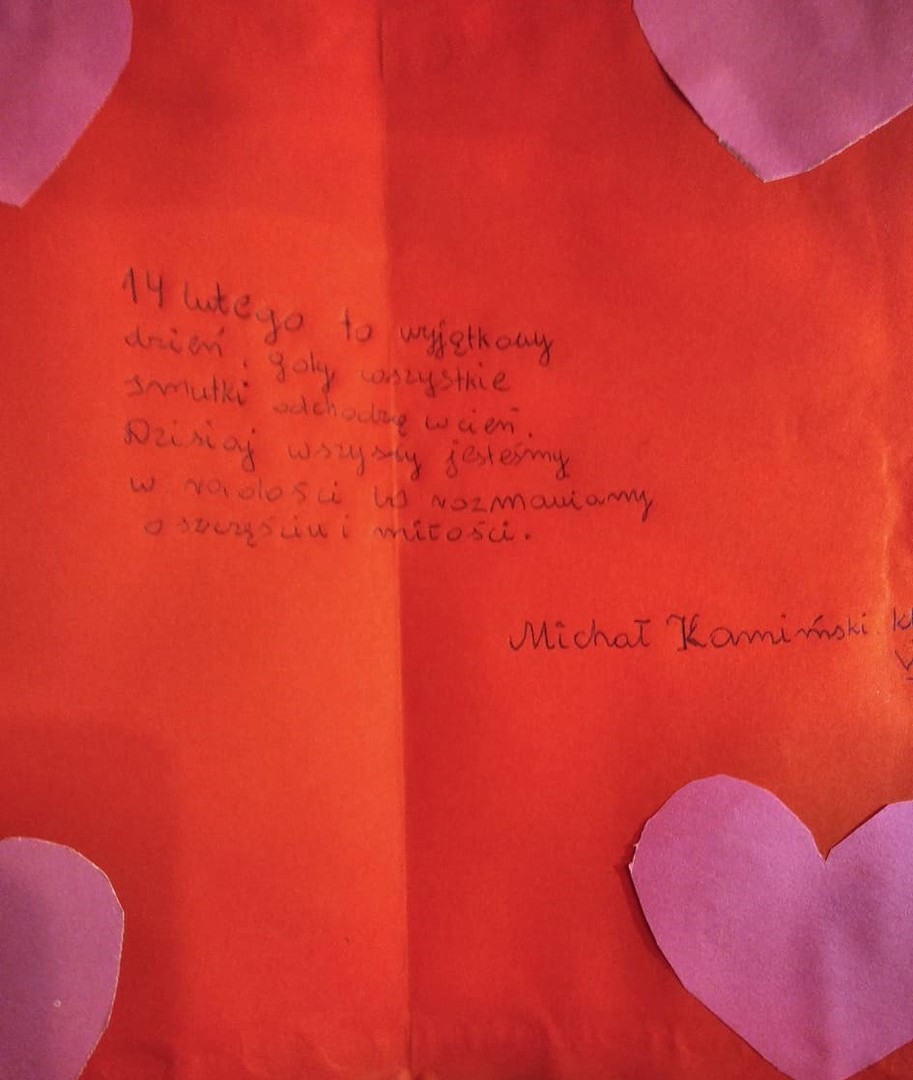 14 lutego to wyjątkowy
dzień, gdy wszystkie
smutki odchodzą w cień.
Dzisiaj wszyscy jesteśmy
w radości rozmawiamy
o szczęściu i miłości.
Michał Kamiński kl